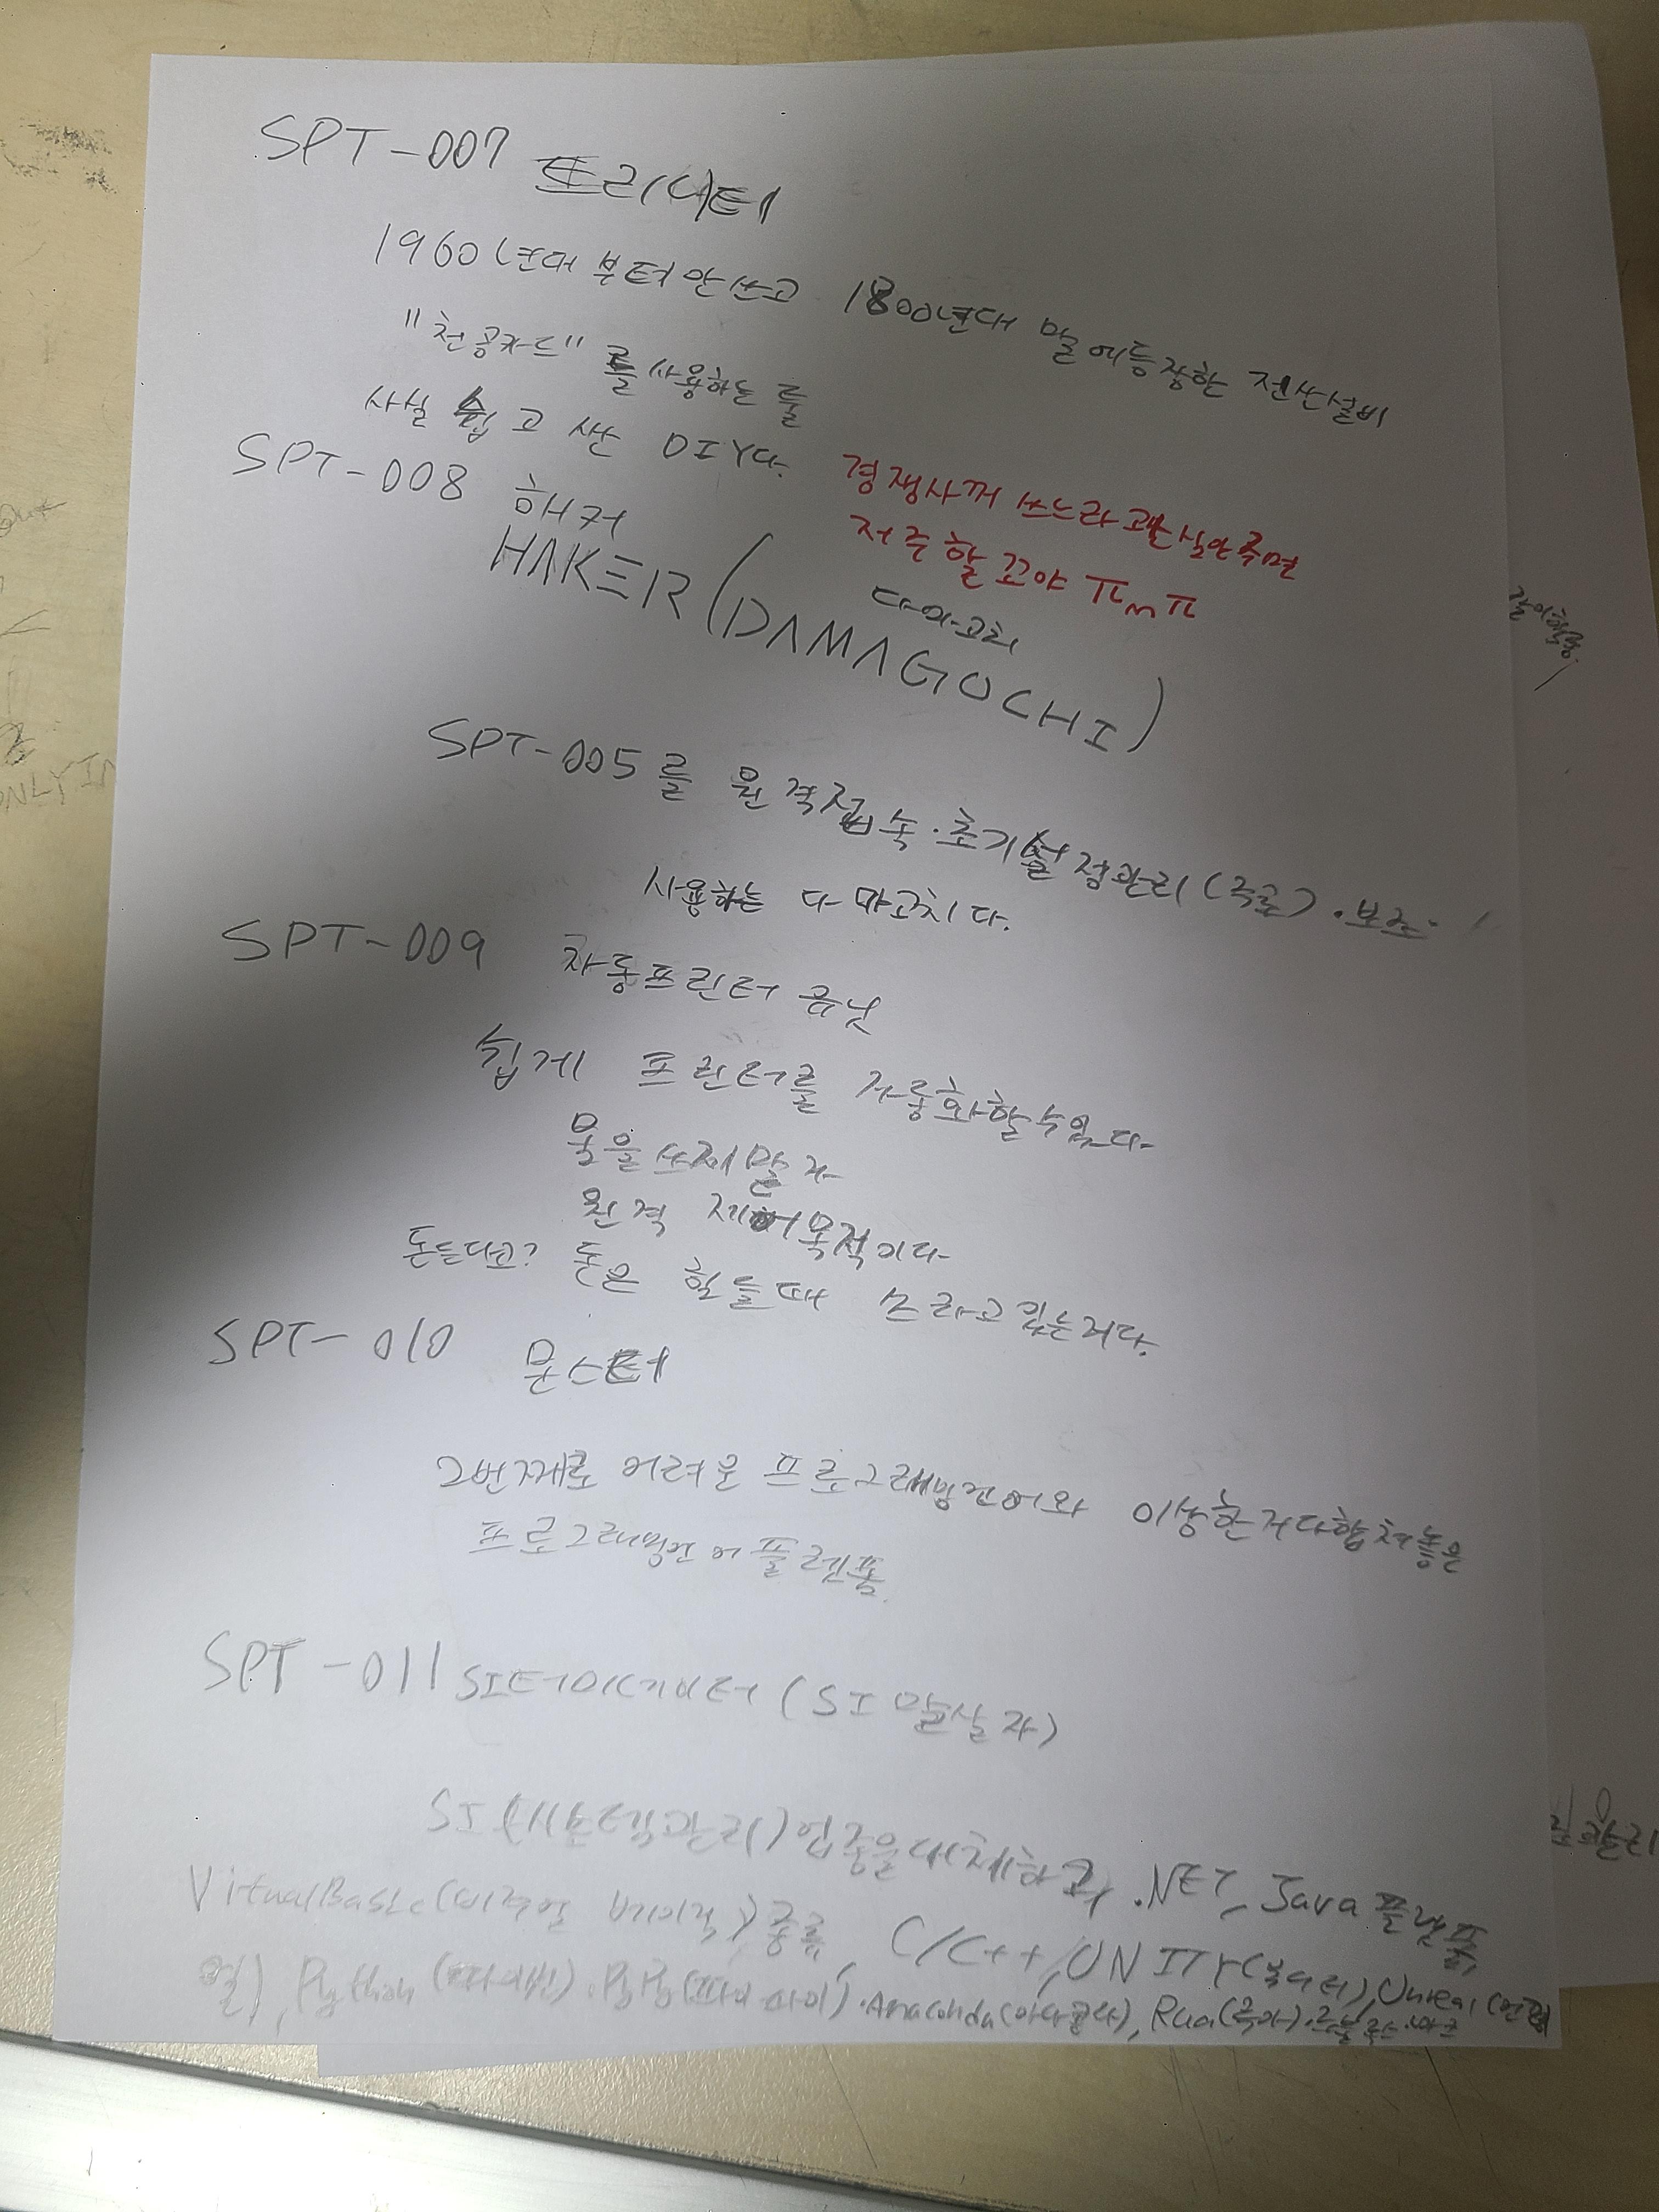 SPT-007 트리니티
1960년대부터 안쓰고 1800년대 말에 등장한 전산설비
"천공카드"를 사용하는 룰
사실 쉽고 싼 DIY다.
경쟁사꺼 쓰느라 관심안주면
저주할꼬야 ㅠㅠ
SPT-008 해커
HAKER (DAMAGOCHI)
다마고치
SPT-005를 원격접속·초기설정관리(주로)·보조·
사용하는 다마고치다.
SPT-009 자동프린터 큐닛
쉽게 프린터를 자동화할수있다
물을 쓰지말자
원격 제어목적이다
돈든다고? 돈은 힘들때 쓰라고있는거다.
SPT-010 몬스터
2번째로 어려운 프로그래밍언어와 이상한거다합쳐놓은
프로그래밍언어플랫폼.
SPT-011 SI터미네이터 (SI말살자)
SI(시스템관리)업종을대체하고, .NET, Java 플랫폼,
VitualBasic(비주얼 베이직)종류, C/C++, UNITY(유니티), Unreal(언리
얼), Python(파이썬)·PyPy(파이파이)·Anaconda(아나콘다), Rua(루아)·로블록스·
ONLY IN